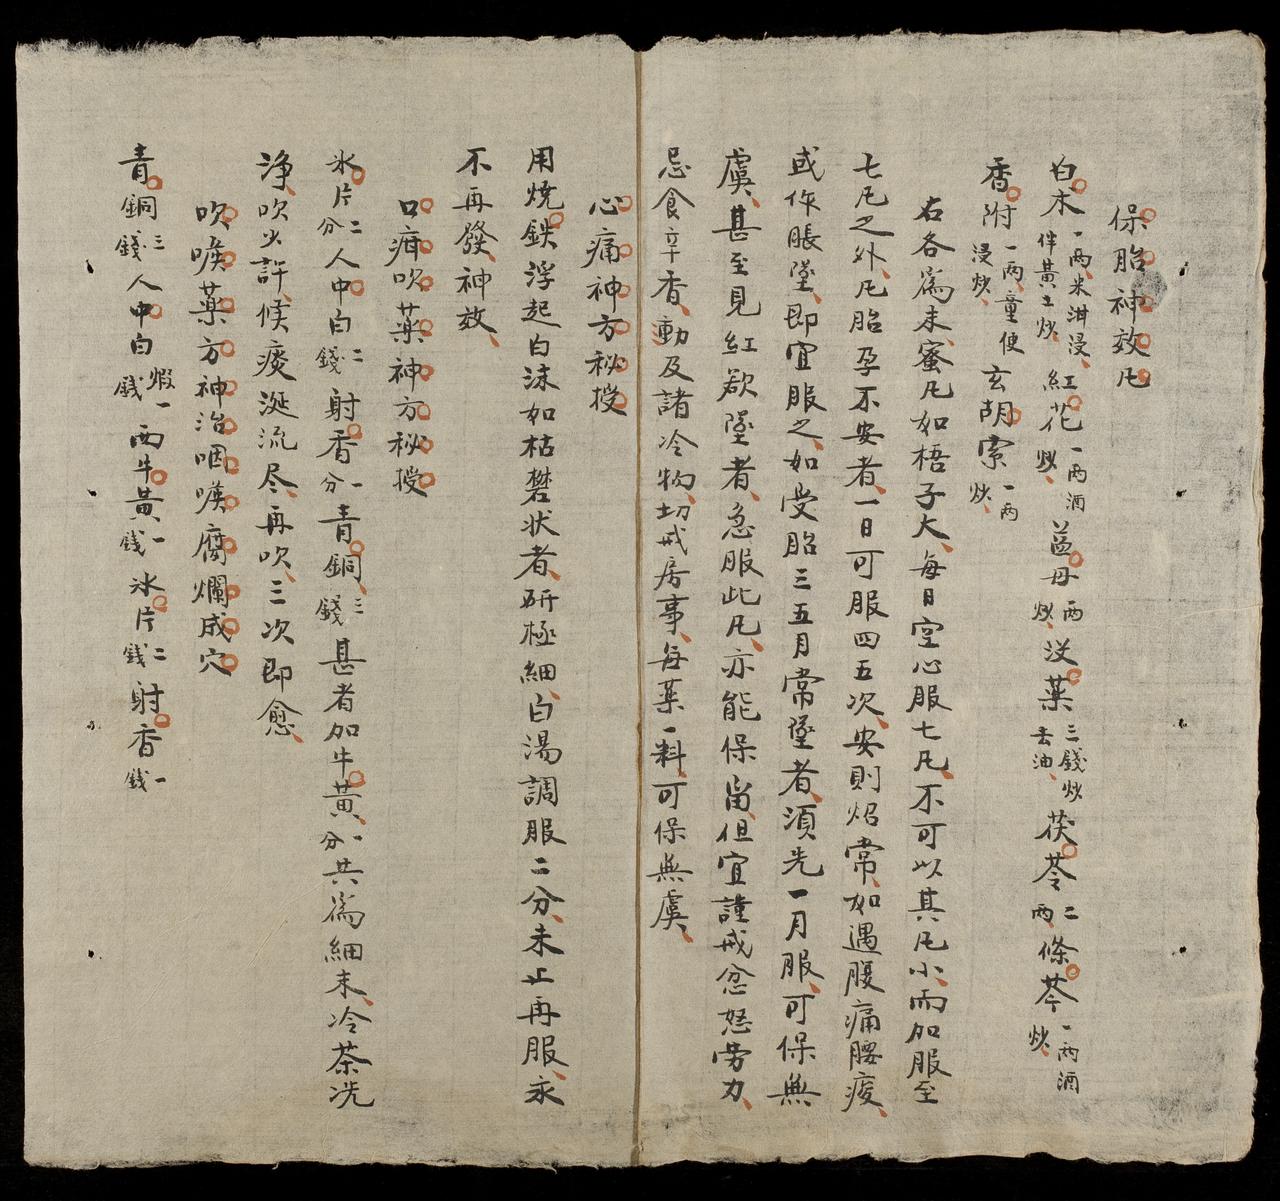 保胎神效凡
白术一两米泔浸伴黃土炒、紅花一两酒炒、益母两炒、没葯三錢炒去油、茯苓二两、條芩一两酒炒、
香附一两、童便浸炒、玄胡索一两炒、
右各為末、蜜凡如梧子大、每日空心服七凡、不可以其凡小、而加服至
七凡之外、凡胎孕不安者、一日可服四五次、安則炤常、如遇腹痛腰痠、
或作脹墜、即宜服之、如受胎三五月常墜者、須先一月服、可保無
虞、甚至見紅欲墜者、急服此凡、亦能保畄、但宜謹戒忿怒劳力、
忌食辛香、動及諸冷物、切戒房事、每葯一料、可保無虞、
心痛神方秘授
用燒鉄浮起白沫如枯礬状者、研極細、白湯調服二分、未止再服、永
不再發、神效、
口疳吹葯神方秘授
氷片二分人中白二錢射香一分青銅三錢甚者加牛黃一分、共為細末、冷茶洗
净、吹少許、候痰涎流尽、再吹、三次即愈、
吹喉葯方神治咽喉腐爛成穴
青銅三錢人中白煆一两錢牛黃一錢氷片二錢射香一錢